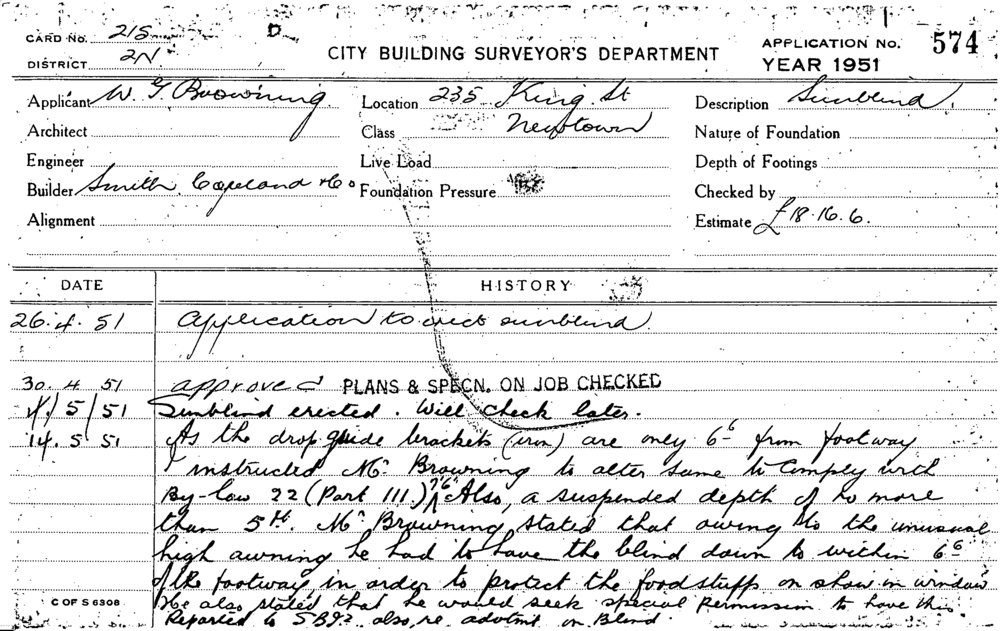 CARD No. 215
DISTRICT 2N
D
CITY BUILDING SURVEYOR'S DEPARTMENT
APPLICATION No. 574
YEAR 1951
Applicant W. G. Browning
Location 235 King St
Newtown
Description Sunblind.
Architect
Class
Nature of Foundation
Engineer
Live Load
Depth of Footings
Builder Smith Copeland & Co
Foundation Pressure
Checked by
Alignment
Estimate £18.16.6.
DATE HISTORY
26.4.51 Application to erect sunblind.
30 4 51 approved PLANS & SPECN. ON JOB CHECKED
/5/51 Sunblind erected. Will check later.
14.5 51 As the drop guide brackets (iron) are only 6'6" from footway
I instructed Mr Browning to alter same to comply with
By-law 22 (Part III.) 7'6" Also, a suspended depth of no more
than 5ft. Mr Browning stated that owing to the unusual
high awning he had to have the blind down to within 6'6"
of the footway in order to protect the foodstuffs on show in window
He also stated that he would seek special permission to have this.
Reported to also, re advtmt on Blind.
C OF S 6308